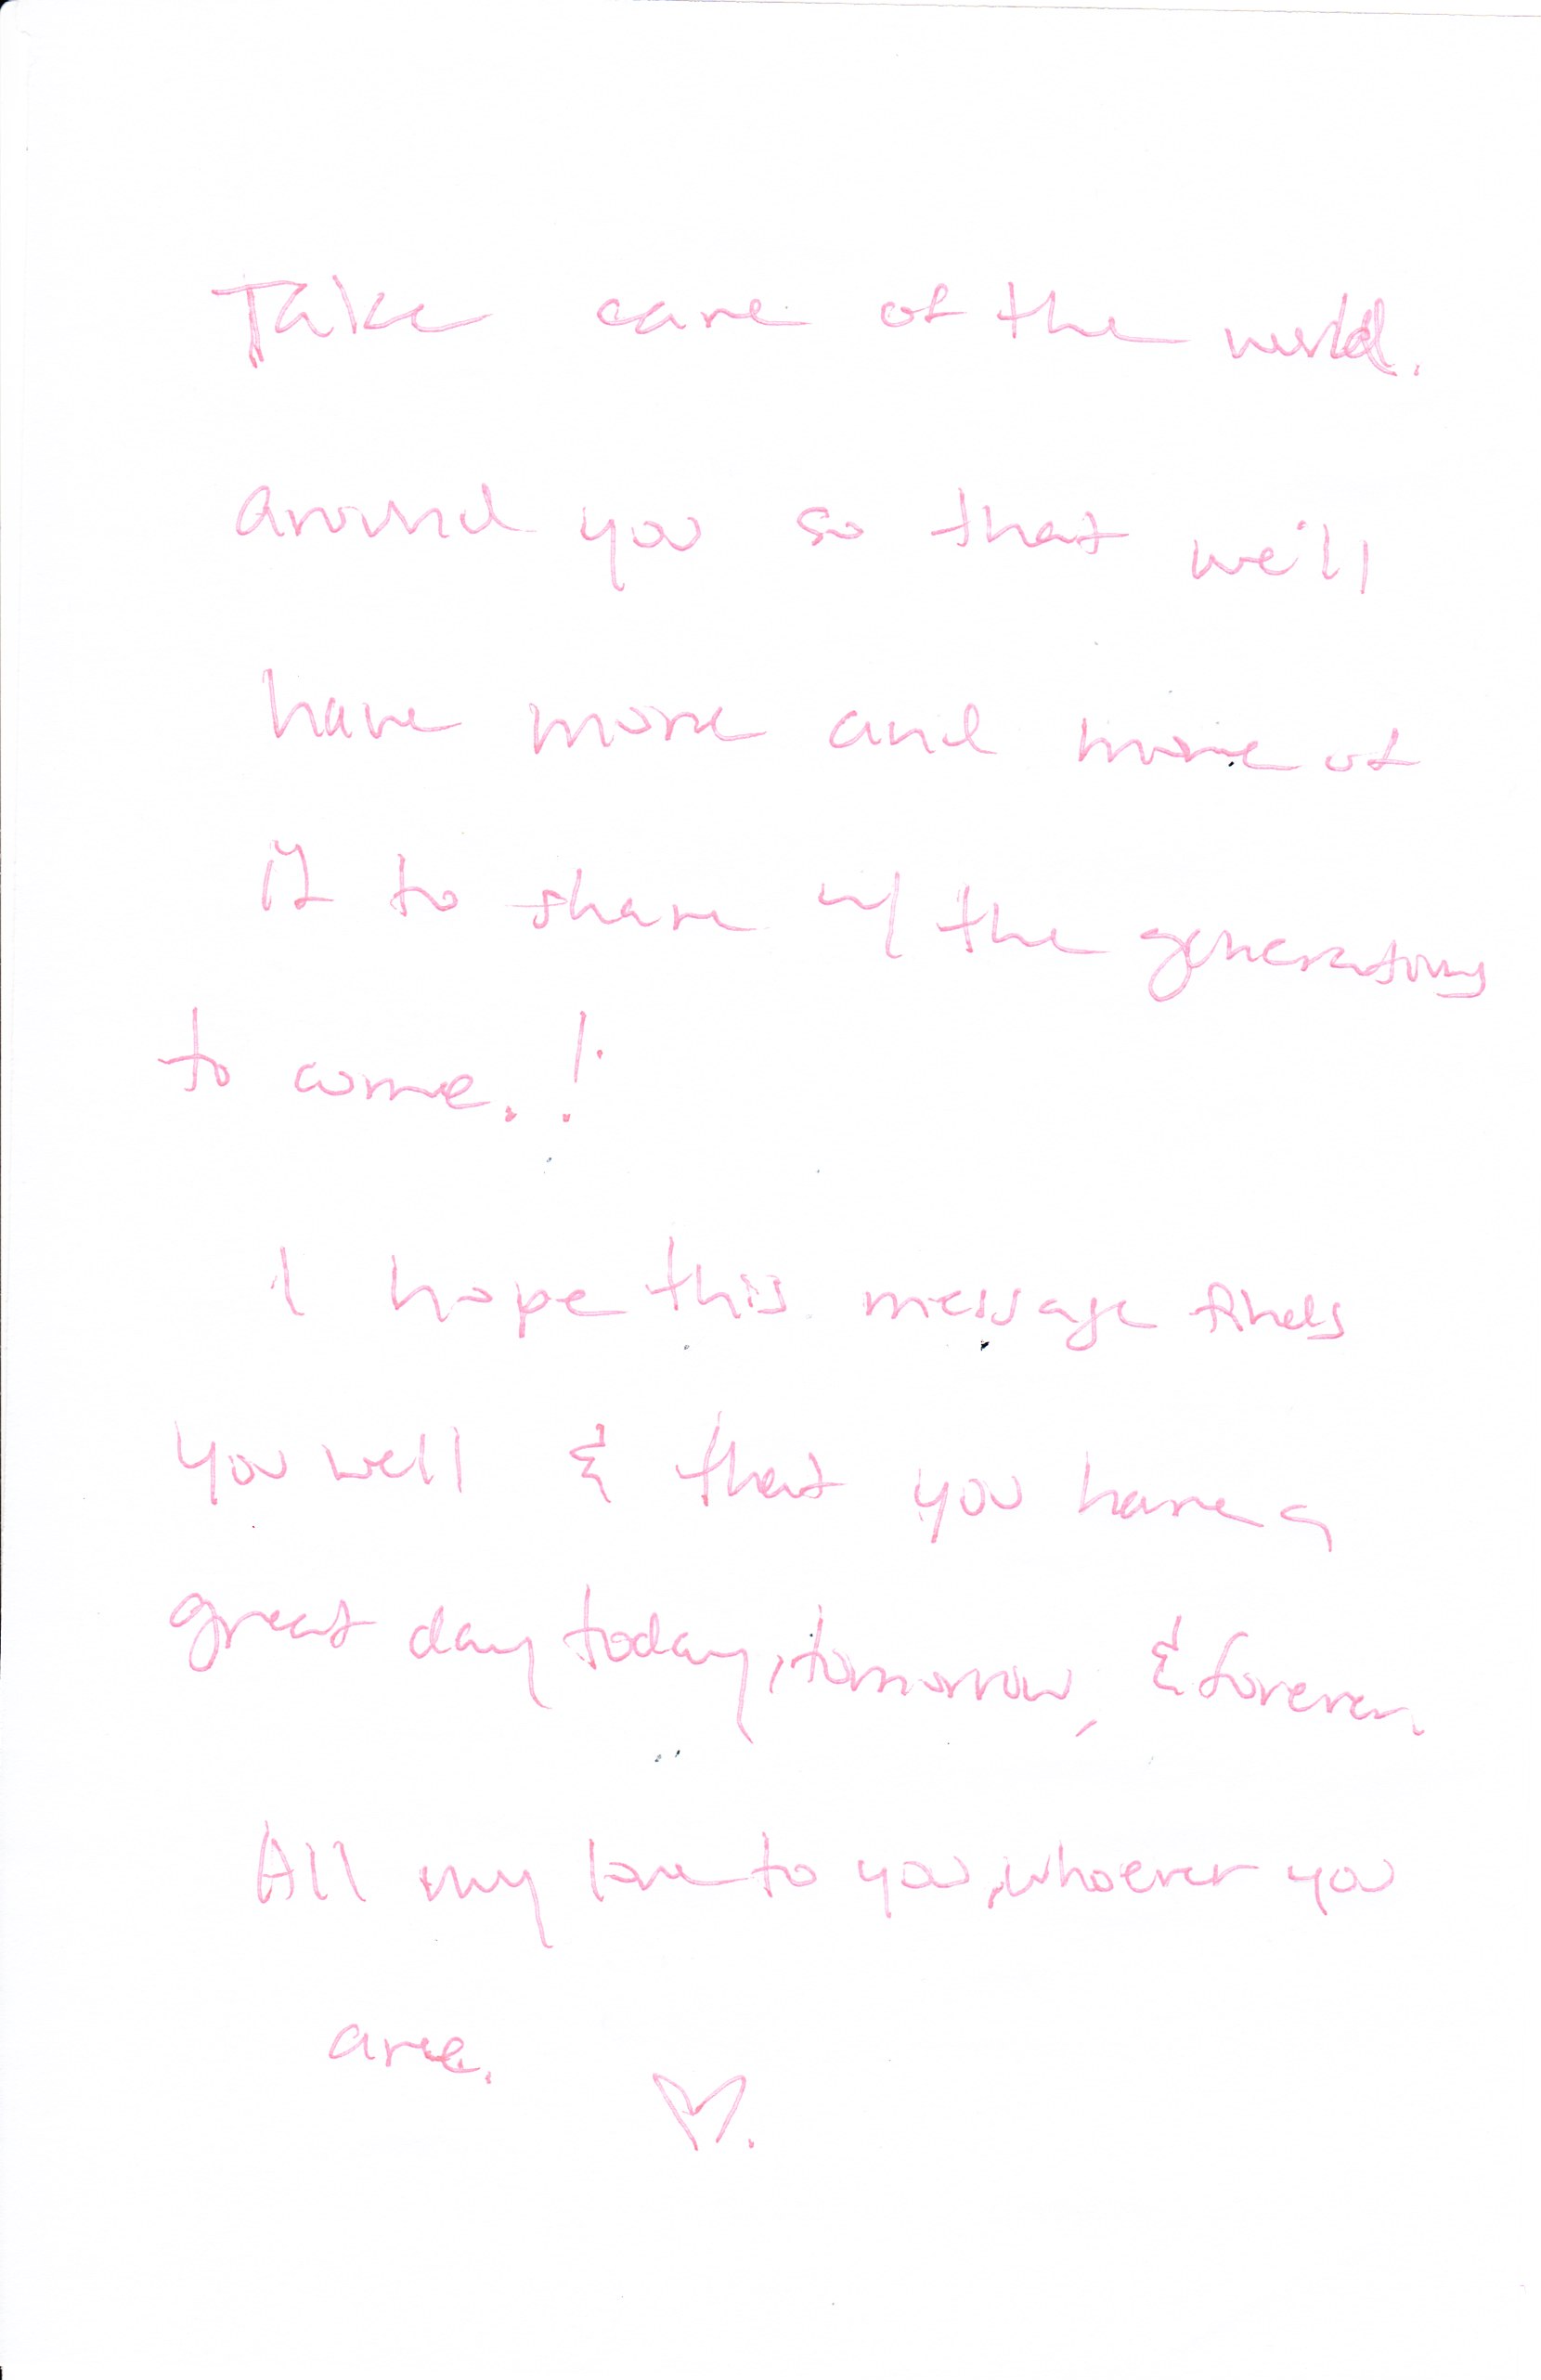 Take care of the world.
around you so that we'll
have more and more of
it to share w/ the generations
to come. !
I hope this message finds
you well & that you have a
great day today, tomorrow, & forever.
All my love to you, whoever you
are.